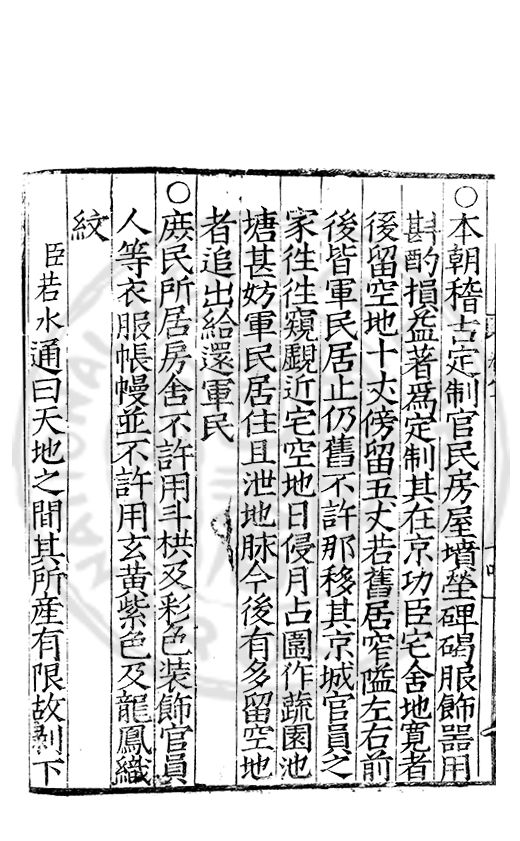 ○本朝稽古定制官民房屋墳塋碑碣服飾器用
斟酌損益著爲定制其在京功臣宅舍地寬者
後留空地十丈傍留五丈若舊居窄隘左右前
後皆軍民居止仍舊不許那移其京城官員之
家徃徃窺覷近宅空地日侵月占圍作蔬園池
塘甚妨軍民居住且泄地脉今後有多留空地
者追出給還軍民
○庶民所居房舍不許用斗栱及彩色装飾官員
人等衣服帳幔並不許用玄黄紫色及龍鳳織
紋
臣若水通曰天地之間其所産有限故剥下